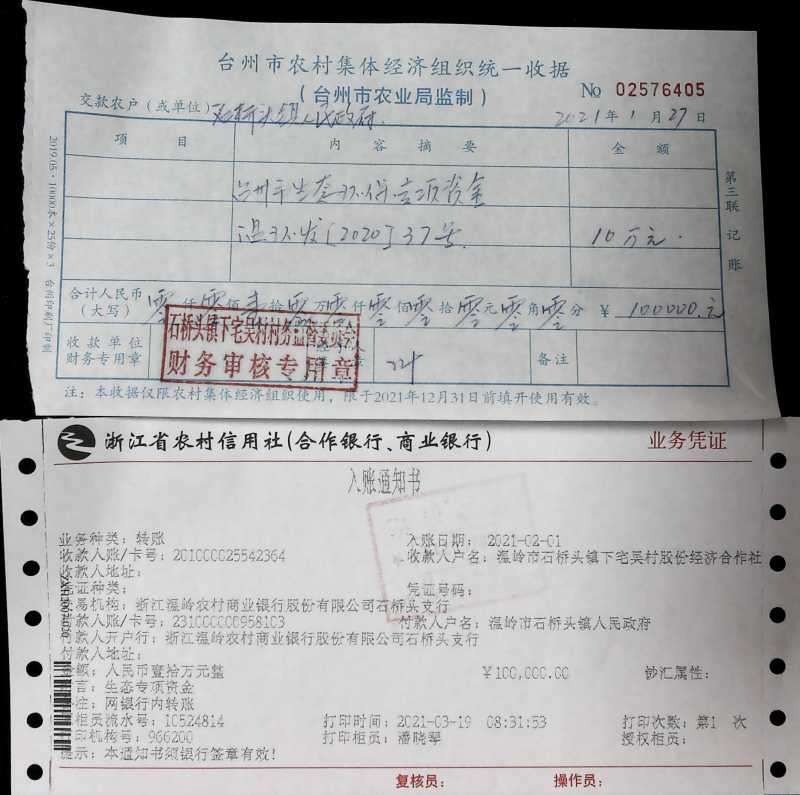 台州市农村集体经济组织统一收据
(台州市农业局监制)
No 02576405
交款农户(或单位) 石桥头镇人民政府
2021年1月27日
项目 内容摘要 金额
台州市生态环保专项资金
温环发[2020]37号 10万元.
合计人民币(大写) 零仟零佰壹拾零万零仟零佰零拾零元零角零分 ¥ 100000.元
收款单位财务专用章
石桥头镇下宅吴村村务监督委员会
财务审核专用章
备注
注:本收据仅限农村集体经济组织使用,限于2021年12月31日前填开使用有效。
第三联 记账
2019.05·10000本×25份×3 台州印刷厂印制
浙江省农村信用社(合作银行、商业银行) 业务凭证
入账通知书
业务种类:转账 入账日期: 2021-02-01
收款人账/卡号:201000025542364 收款人户名:温岭市石桥头镇下宅吴村股份经济合作社
收款人地址:
凭证种类: 凭证号码:
交易机构:浙江温岭农村商业银行股份有限公司石桥头支行
付款人账/卡号:231000000958103 付款人户名:温岭市石桥头镇人民政府
付款人开户行:浙江温岭农村商业银行股份有限公司石桥头支行
付款人地址:
金额:人民币壹拾万元整 ¥100,000.00 钞汇属性:
言:生态专项资金
注:网银行内转账
柜员流水号:10524814 打印时间:2021-03-19 08:31:53 打印次数:第1 次
打印机构号:966200 打印柜员:潘晓琴 授权柜员:
提示:本通知书须银行签章有效!
复核员: 操作员: